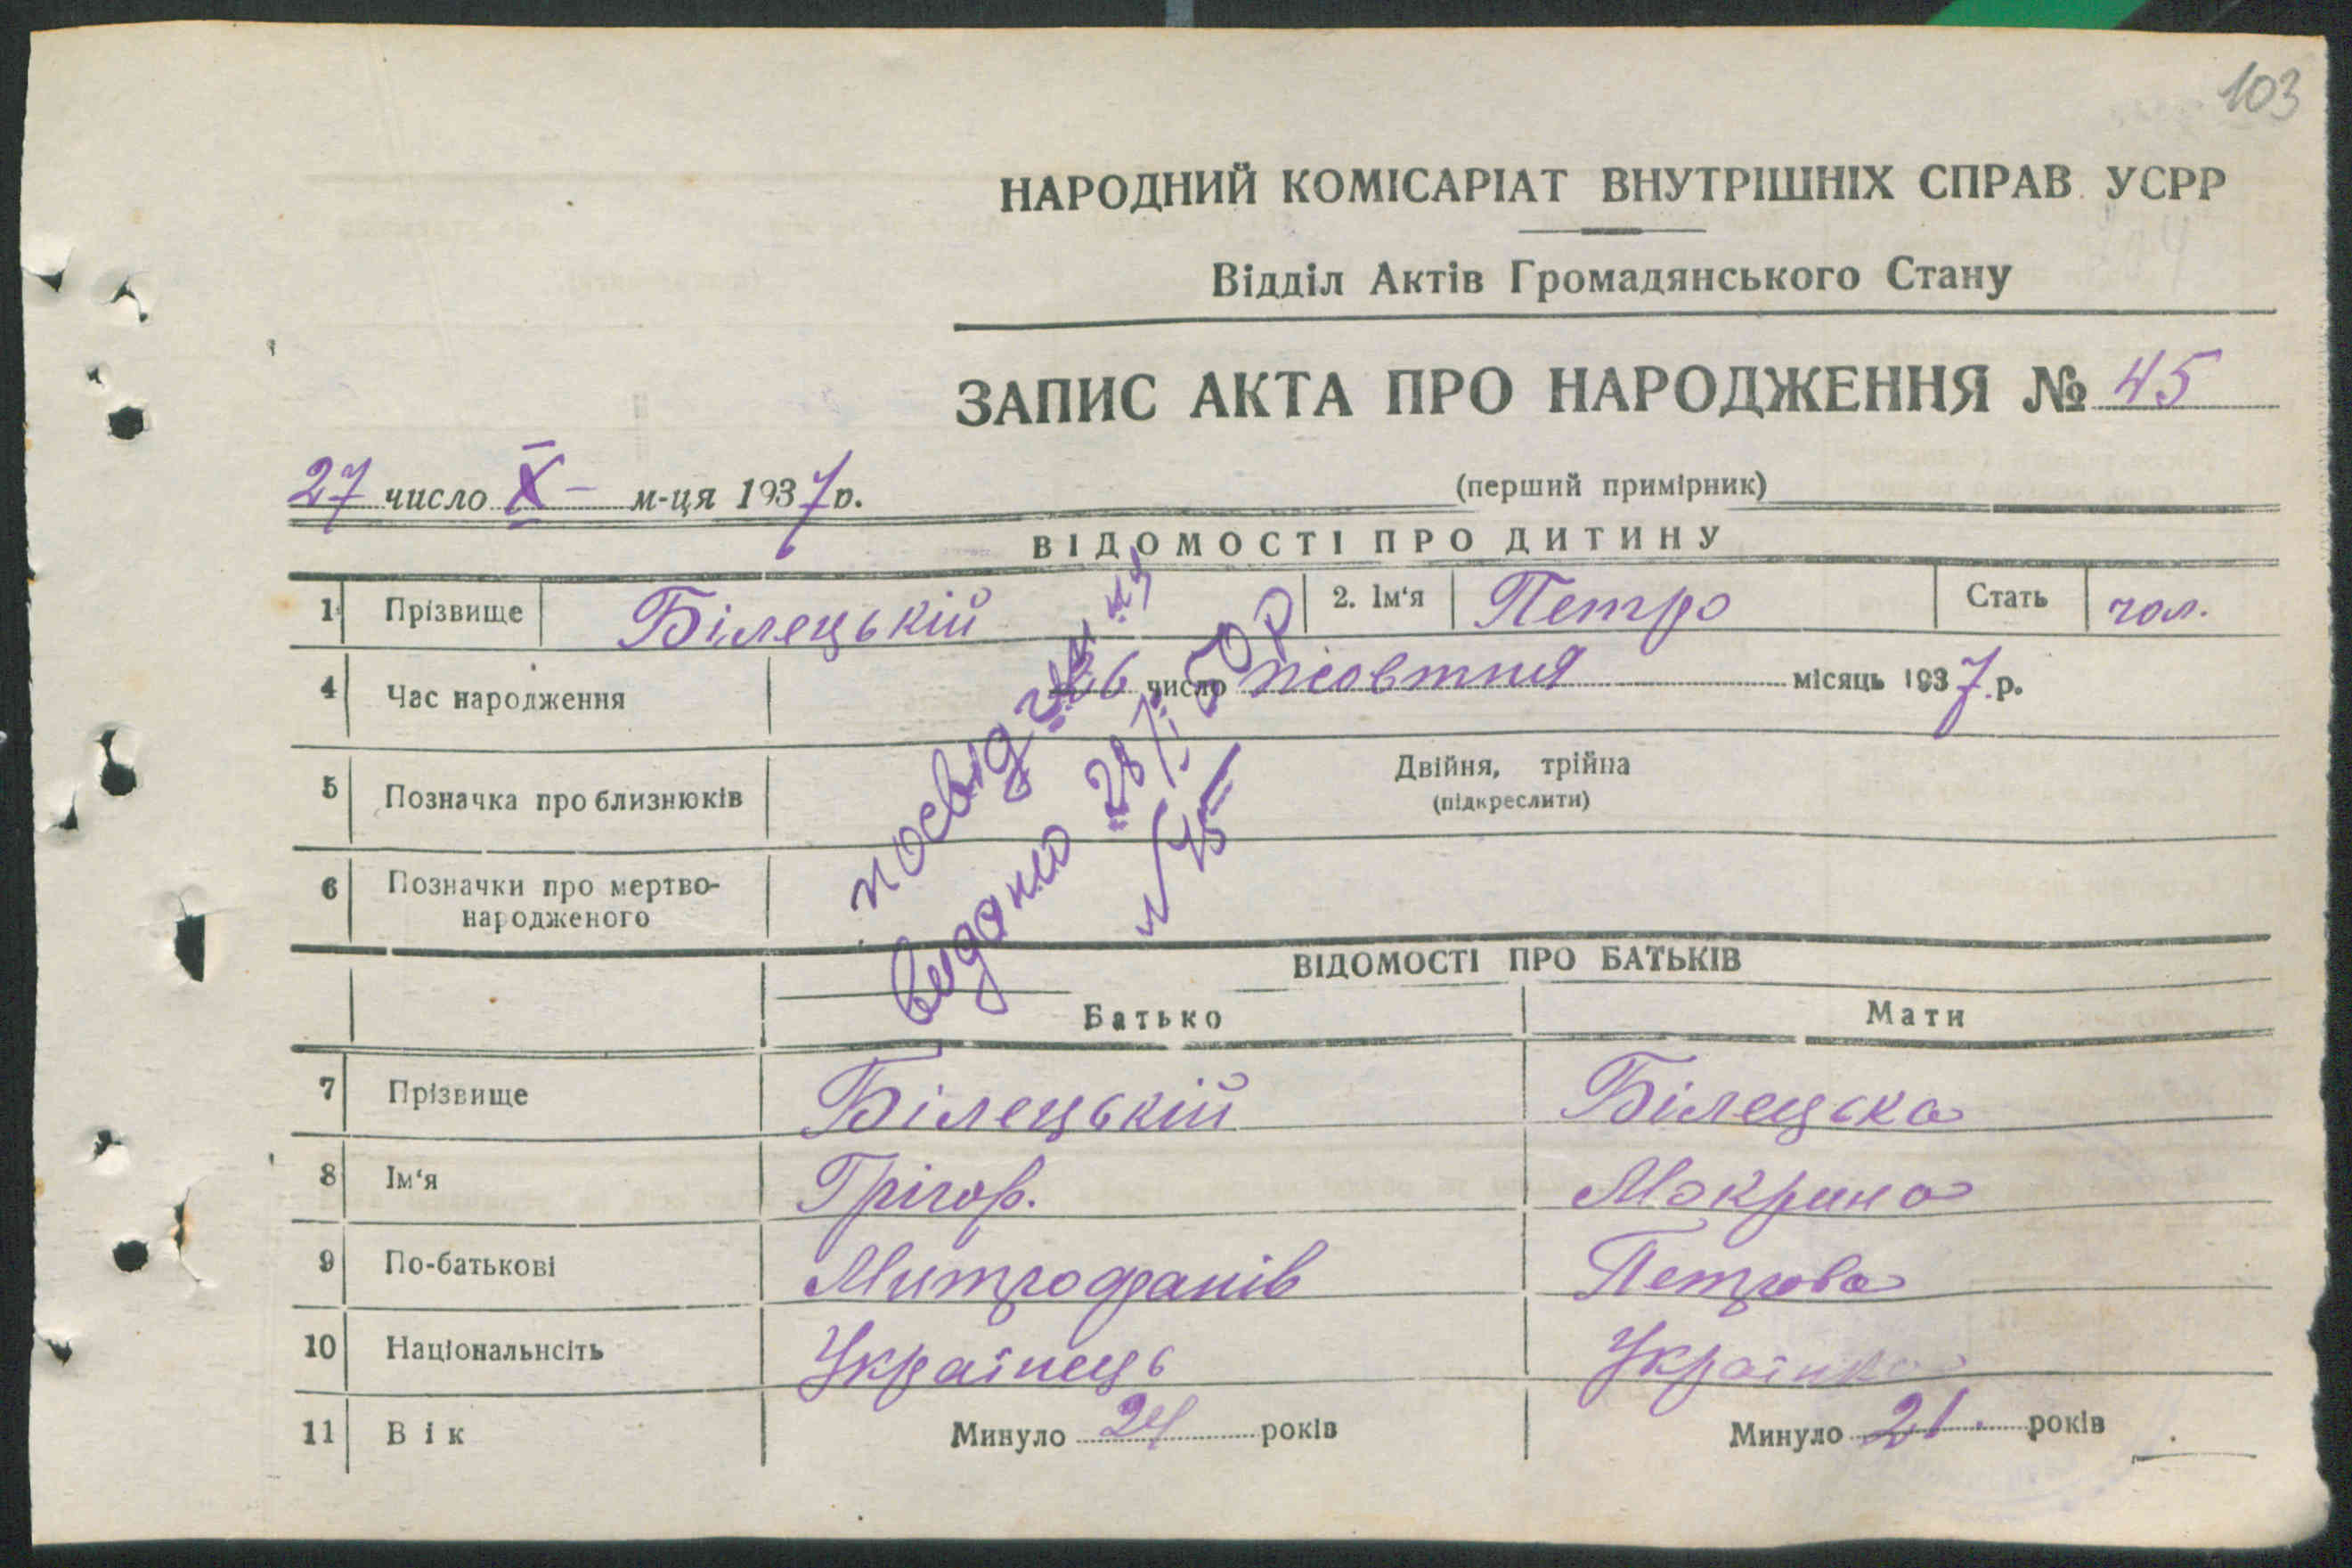 103
НАРОДНИЙ КОМІСАРІАТ ВНУТРІШНІХ СПРАВ УСРР
Відділ Актів Громадянського Стану
ЗАПИС АКТА ПРО НАРОДЖЕННЯ № 45
27 число X - м-ця 1937 р.
(перший примірник)
ВІДОМОСТІ ПРО ДИТИНУ
1 Прізвище Білецькій 2. Ім'я Петро Стать чол.
4 Час народження 26 число жовтня місяць 1937 р.
5 Позначка про близнюків Двійня, трійна
(підкреслити)
6 Позначки про мертво-
народженого
посвідч
видано 28/ 50р
№ 45
ВІДОМОСТІ ПРО БАТЬКІВ
Батько Мати
7 Прізвище Білецькій Білецька
8 Ім'я Грігор. Мокрина
9 По-батькові Митрофанів Петрова
10 Національнсіть Українець Українка
11 Вік Минуло 24 років Минуло 21. років